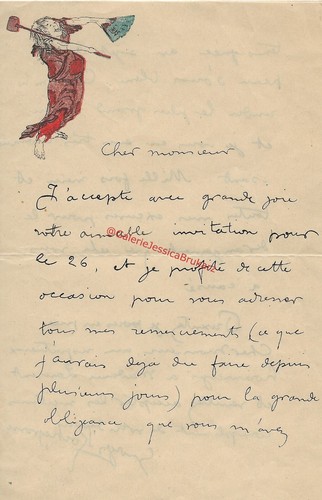 Cher monsieur
J'accepte avec grande joie
votre aimable invitation pour
@GalerieJessicaBrukarz
le 26, et je profite de cette
occasion pour vous adresser
tous mes remerciements (ce que
j'aurais deja du faire depuis
plusieurs jours) pour la grande
obligeance que vous m'avez